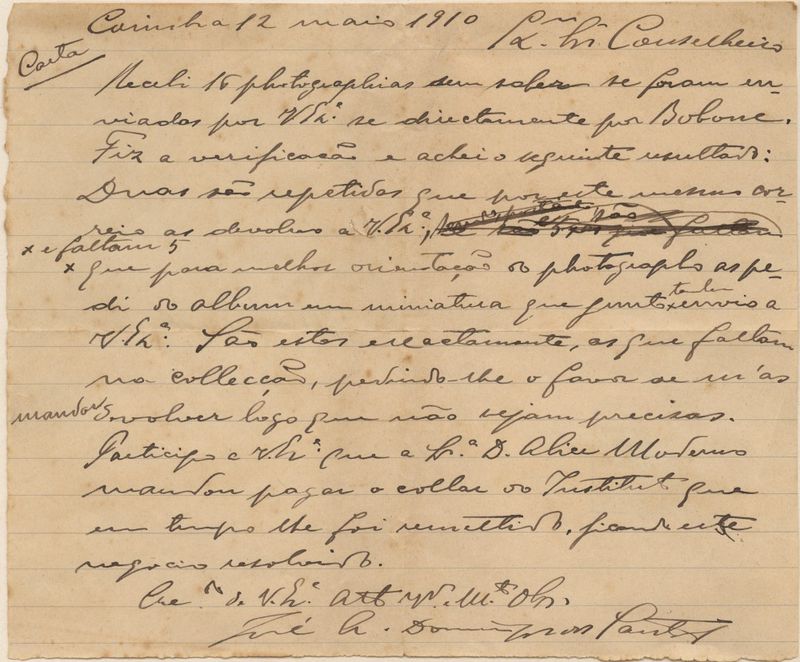 Coimbra 12 maio 1910
Carta
Exmo Sr. Conselheiro
Recebi 16 photographias sem saber se foram en-
viadas por V. Exª. se directamente por Bobone.
Fiz a verificação e achei o seguinte resultado:
Duas são repetidas que por este mesmo cor-
reio as devolvo a V. Exª.,
x e faltam 5
x que para melhor orientação do photographo as pe-
di do album em miniatura que junto x tambem envio a
V. Exª. São estes exactamente, as que faltam
na collecção, pedindo-lhe o favor de m'as
mandar
devolver logo que não sejam precisas.
Participo a V. Exª. que a Srª D. Alice Moderno
mandou pagar o collar do Instituto que
em tempo lhe foi remettido, ficando este
negocio resolvido.
de V. Exª. Attº Vor e Mto Obr.
José A. Domingues dos Santos